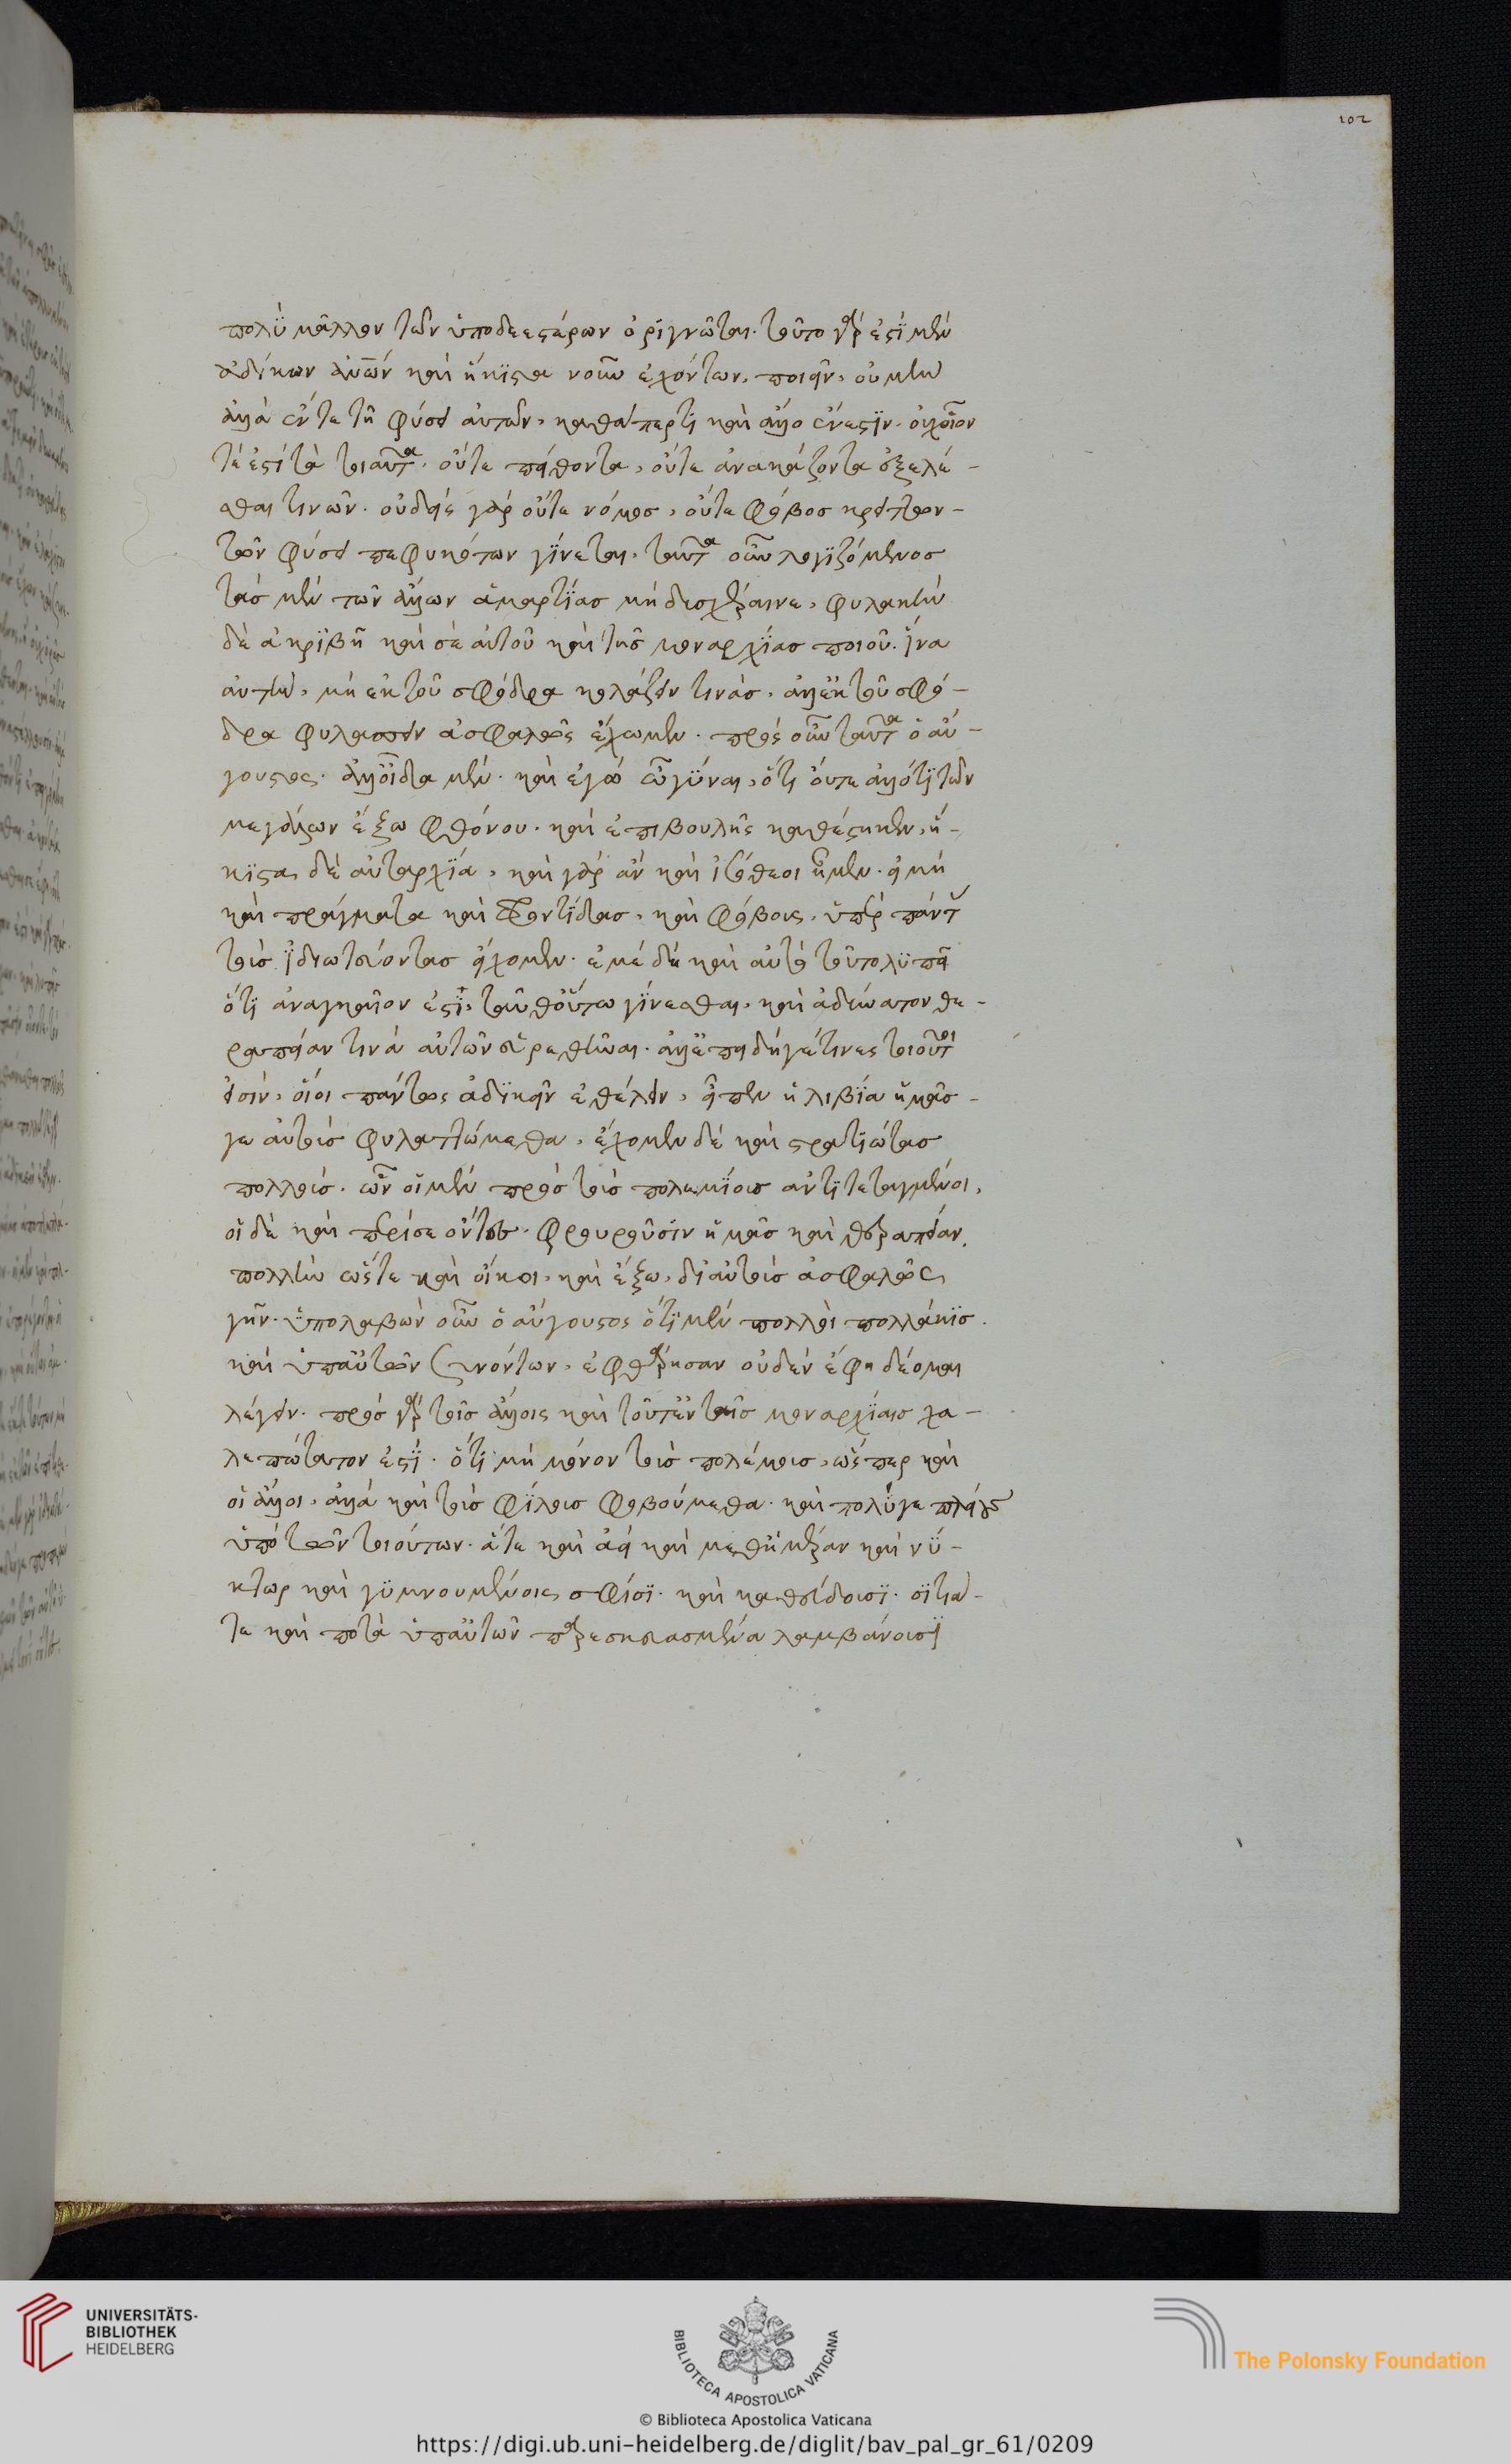 πολὺ μᾶλλον τῶν ὑποδεεστέρων ὀριγνῶται. τοῦτο γάρ ἐστι μὲν
ἀδίκων ἀνῶν καὶ ἥκιστα νοῦν ἐχόντων, ποιεῖν, οὐ μὴν
ἀλλὰ ἔν τε τῇ φύσει αὐτῶν, καθάπερ τι καὶ ἄλλο ἔνεστιν. οὐχ οἷον
τέ ἐστι τὰ τοιαῦτα, οὔτε πείθοντα, οὔτε ἀναγκάζοντα ἐξελέ-
σθαι τινῶν. οὐδεὶς γὰρ οὔτε νόμος, οὔτε φόβος κρείττον-
τῶν φύσει πεφυκότων γίνεται. ταῦτα οὖν λογιζόμενος
τὰς μὲν τῶν ἄλλων ἁμαρτίας μὴ δυσχέραινε, φυλακὴν
δὲ ἀκριβῆ καὶ σὲ αὐτοῦ καὶ τῆς μοναρχίας ποιοῦ. ἵνα
αὐτὴν, μὴ ἐκ τοῦ σφόδρα κολάζειν τινὰς, ἀλλ' ἐκ τοῦ σφό-
δρα φυλάττειν ἀσφαλῶς ἔχωμεν. πρὸς οὖν ταῦτα ὁ αὔ-
γουστος. ἀλλ' οἶδα μὲν. καὶ ἐγὼ ὦ γύναι, ὅτι οὔτε ἄλλό τι τῶν
μεγάλων ἔξω φθόνου. καὶ ἐπιβουλῆς καθέστηκεν, ἥ-
κιστα δὲ αὐταρχία, καὶ γὰρ ἂν καὶ ἰσόθεοι ἦμεν. εἰ μὴ
καὶ πράγματα καὶ φροντίδας, καὶ φόβους, ὑπὲρ πάντας
τοὺς ἰδιωτεύοντας εἴχομεν. ἐμὲ δὲ καὶ αὐτὸ τοῦτο λυπεῖ
ὅτι ἀναγκαῖον ἐστὶ, ταῦθ' οὕτω γίνεσθαι, καὶ ἀδύνατον θε-
ραπείαν τινὰ αὐτῶν εὑρεθῆναι. ἀλλ' ἐπειδή γέ τινες τοιοῦτοι
εἰσὶν, οἷοι πάντως ἀδικεῖν ἐθέλειν, εἶπεν ἡ λιβία ἡμᾶς-
γε αὐτοὺς φυλαττώμεθα, ἔχομεν δὲ καὶ στρατιώτας
πολλοὺς. ὧν οἱ μὲν πρὸς τοὺς πολεμίους ἀντιτεταγμένοι,
οἱ δὲ καὶ περὶ σε ὄντες. φρουροῦσιν ἡμᾶς καὶ θεραπείαν
πολλὴν ὥστε καὶ οἴκοι, καὶ ἔξω, δι' αὐτοὺς ἀσφαλῶς
ζῆν. ὑπολαβὼν οὖν ὁ αὔγουστος ὅτι μὲν πολλοὶ πολλάκις.
καὶ ὑπ' αὐτῶν συνόντων, ἐφθάρησαν οὐδὲν ἔφη δέομαι
λέγειν. πρὸς γὰρ τοῖς ἄλλοις καὶ τοῦτ' ἐν ταῖς μοναρχίαις χα-
λεπώτατον ἐστὶ. ὅτι μὴ μόνον τοὺς πολέμους, ὥσπερ καὶ
οἱ ἄλλοι, ἀλλὰ καὶ τοὺς φίλους φοβούμεθα. καὶ πολύ γε πλείους
ὑπὸ τῶν τοιούτων. ἅτε καὶ ἀεὶ καὶ μεθ' ἡμέραν καὶ νύ-
κτωρ καὶ γυμνουμένοις σφίσι. καὶ καθεύδουσι. σιτία-
τε καὶ ποτὰ ὑπ' αὐτῶν παρεσκευασμένα λαμβάνουσι
102
UNIVERSITÄTS-
BIBLIOTHEK
HEIDELBERG
BIBLIOTECA APOSTOLICA VATICANA
© Biblioteca Apostolica Vaticana
The Polonsky Foundation
https://digi.ub.uni-heidelberg.de/diglit/bav_pal_gr_61/0209